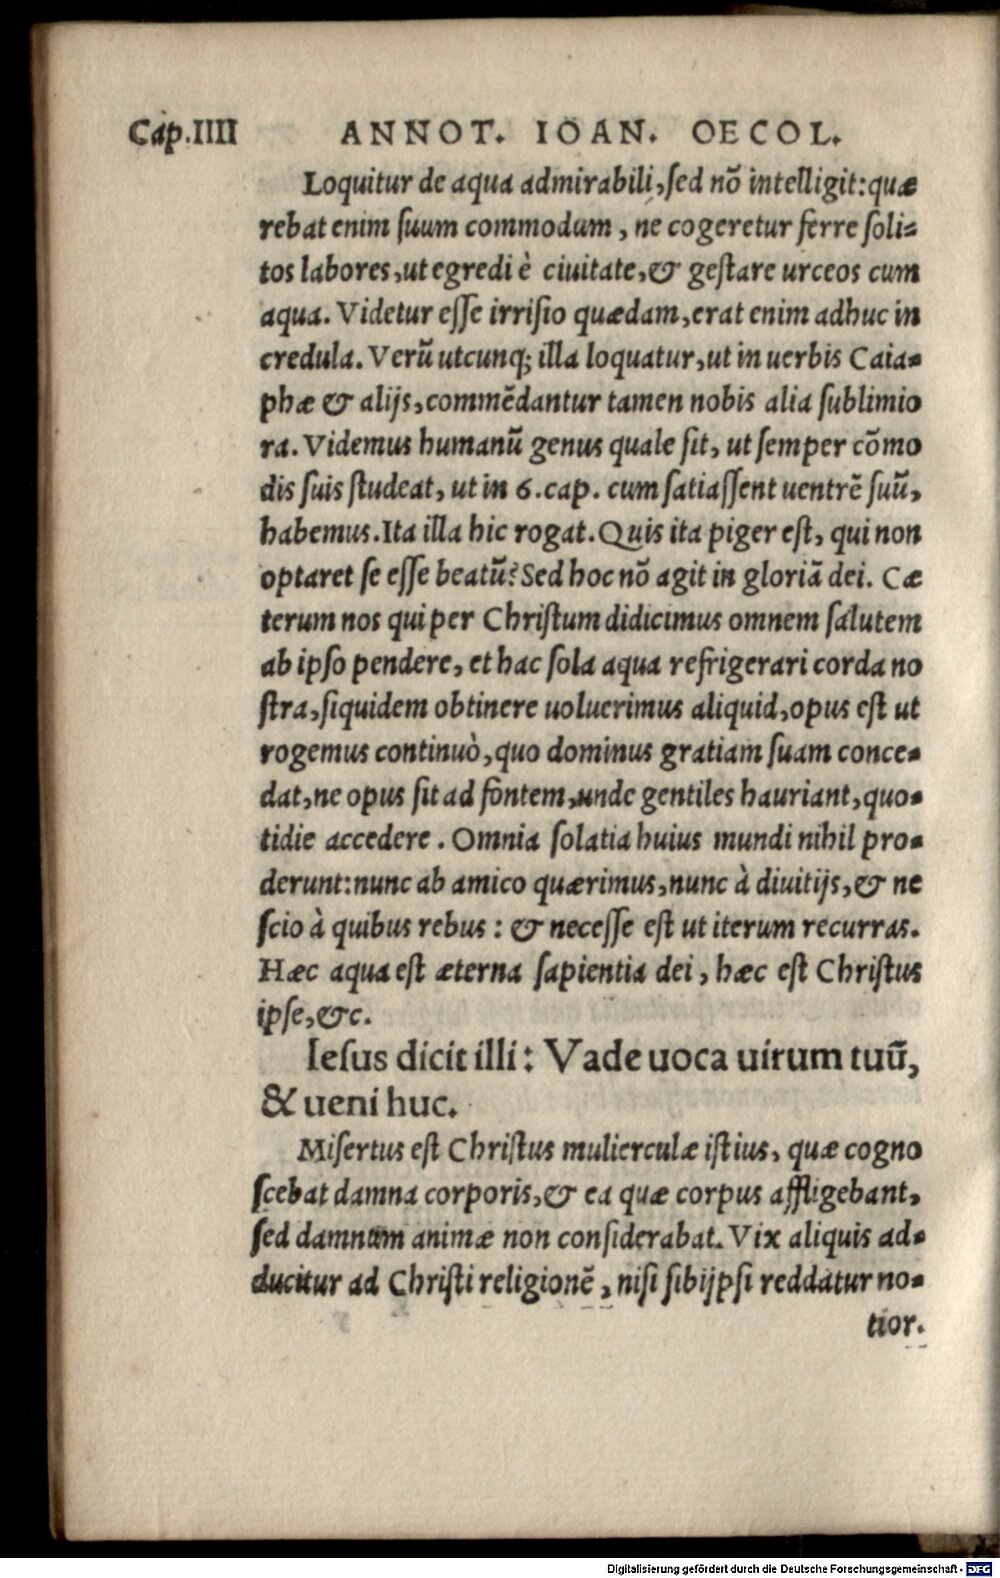 Cap.IIII ANNOT. IOAN. OECOL.
Loquitur de aqua admirabili, sed nõ intelligit: quæ
rebat enim suum commodum, ne cogeretur ferre soli-
tos labores, ut egredi è ciuitate, & gestare urceos cum
aqua. Videtur esse irrisio quædam, erat enim adhuc in
credula. Verũ utcunq; illa loquatur, ut in uerbis Caia-
phæ & alijs, commẽdantur tamen nobis alia sublimio
ra. Videmus humanũ genus quale sit, ut semper cõmo
dis suis studeat, ut in 6. cap. cum satiassent uentrẽ suũ,
habemus. Ita illa hic rogat. Quis ita piger est, qui non
optaret se esse beatũ? Sed hoc nõ agit in gloriã dei. Cæ
terum nos qui per Christum didicimus omnem salutem
ab ipso pendere, et hac sola aqua refrigerari corda no
stra, siquidem obtinere uoluerimus aliquid, opus est ut
rogemus continuò, quo dominus gratiam suam conce-
dat, ne opus sit ad fontem, unde gentiles hauriant, quo-
tidie accedere. Omnia solatia huius mundi nihil pro-
derunt: nunc ab amico quærimus, nunc à diuitijs, & ne
scio à quibus rebus: & necesse est ut iterum recurras.
Hæc aqua est æterna sapientia dei, hæc est Christus
ipse, &c.
Iesus dicit illi: Vade uoca uirum tuũ,
& ueni huc.
Misertus est Christus mulierculæ istius, quæ cogno
scebat damna corporis, & ea quæ corpus affligebant,
sed damnum animæ non considerabat. Vix aliquis ad-
ducitur ad Christi religionẽ, nisi sibijpsi reddatur no-
tior.
Digitalisierung gefördert durch die Deutsche Forschungsgemeinschaft - DFG